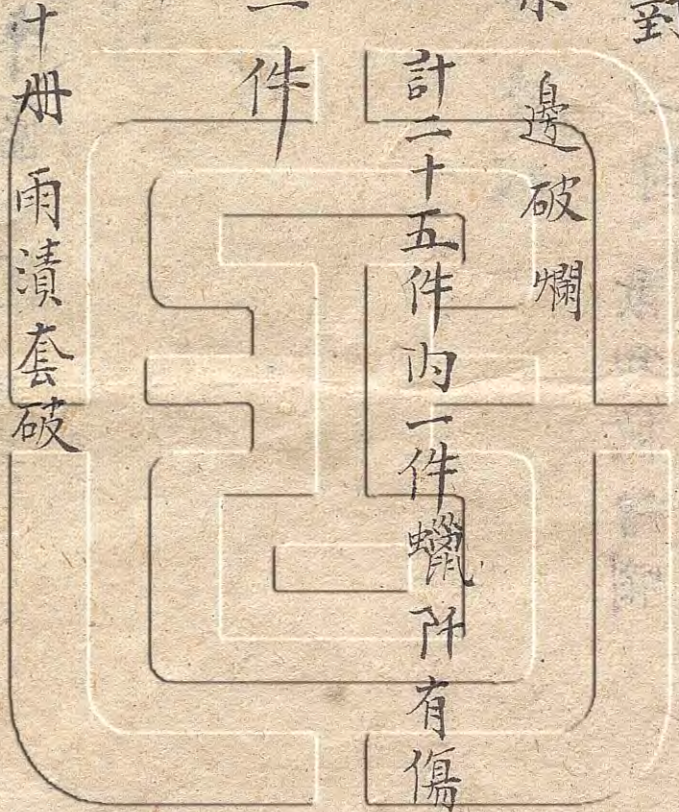 對
邊破爛
計二十五件内一件蠟阡有傷
件
十册 雨漬套破